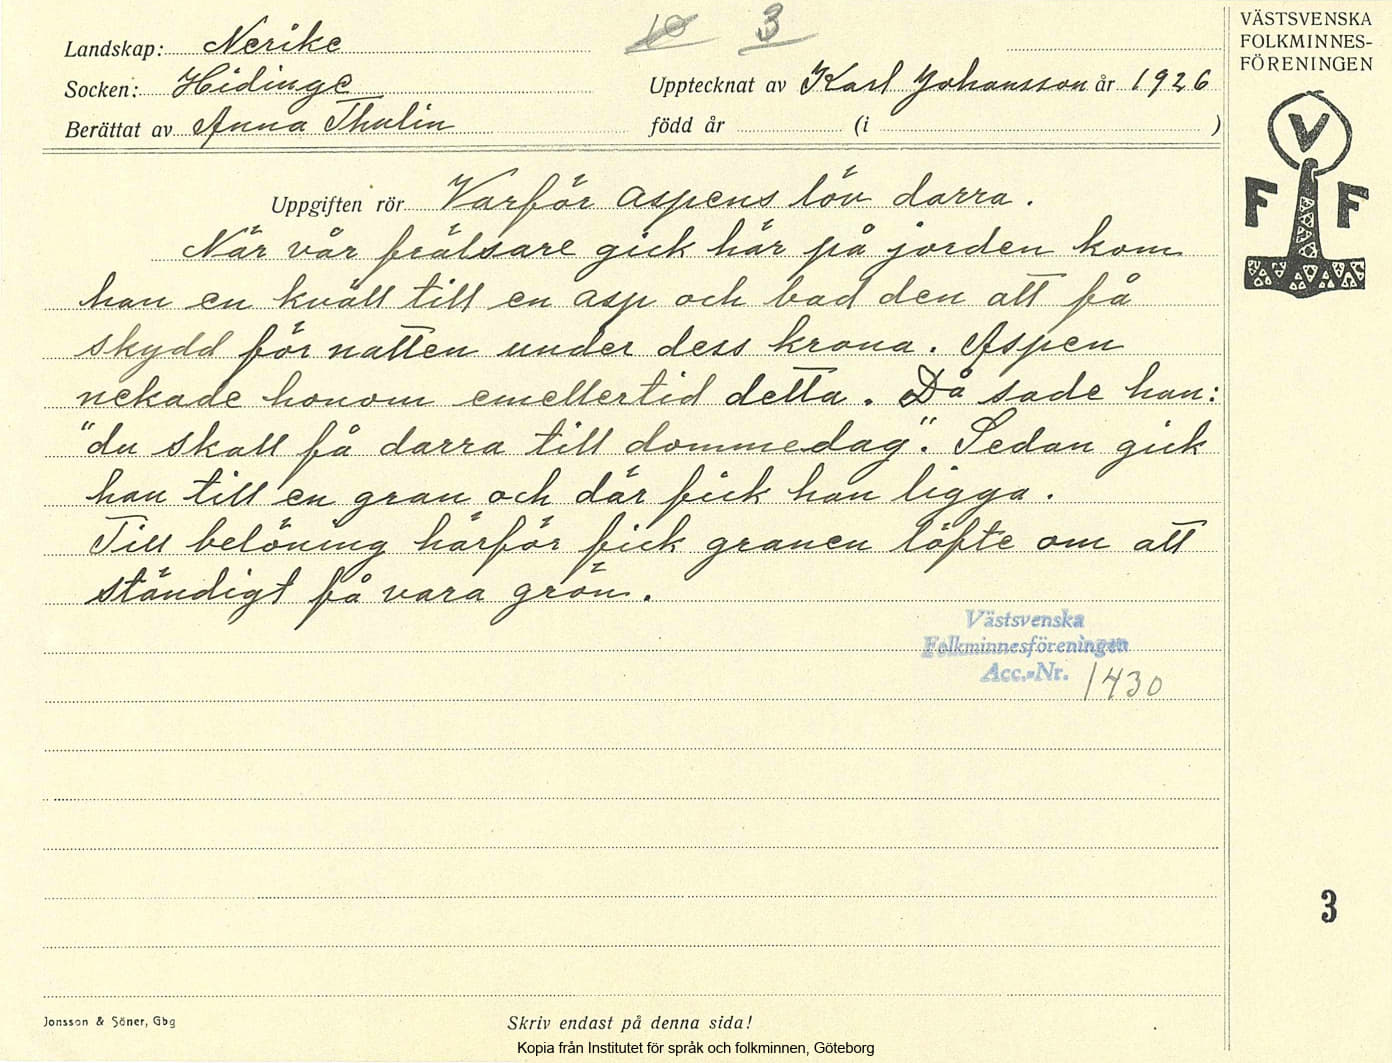 Landskap: Nerike
Socken: Hidinge
Berättat av Anna Thulin
10 3
Upptecknat av Karl Johansson år 1926
född år (i )
VÄSTSVENSKA
FOLKMINNES-
FÖRENINGEN
V
F F
Uppgiften rör Varför aspens löv darra.
När vår frälsare gick här på jorden kom
han en kväll till en asp och bad den att få
skydd för natten under dess krona. Aspen
nekade honom emellertid detta. Då sade han:
"du skall få darra till dommedag". Sedan gick
han till en gran och där fick han ligga.
Till belöning härför fick granen löfte om att
ständigt få vara grön.
Västsvenska
Folkminnesföreningen
Acc.-Nr. 1430
3
Jonsson & Söner, Gbg
Skriv endast på denna sida!
Kopia från Institutet för språk och folkminnen, Göteborg